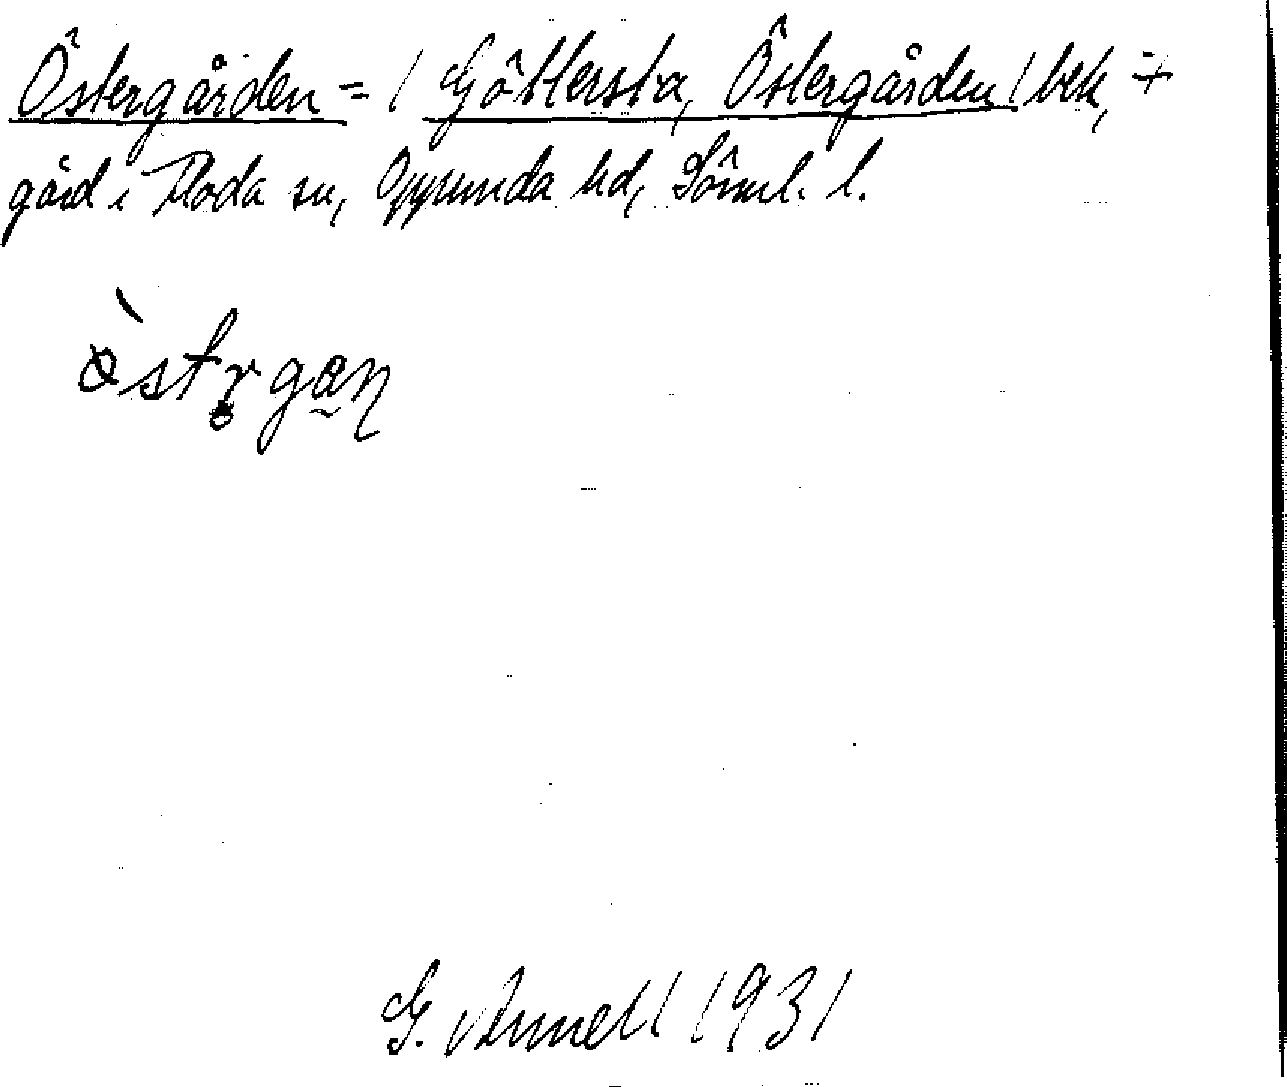 Östergården = / Göttersta, Östergården / bek, +
gård i Floda sn, Oppunda hd, Söml. l.
G. Annell 1931